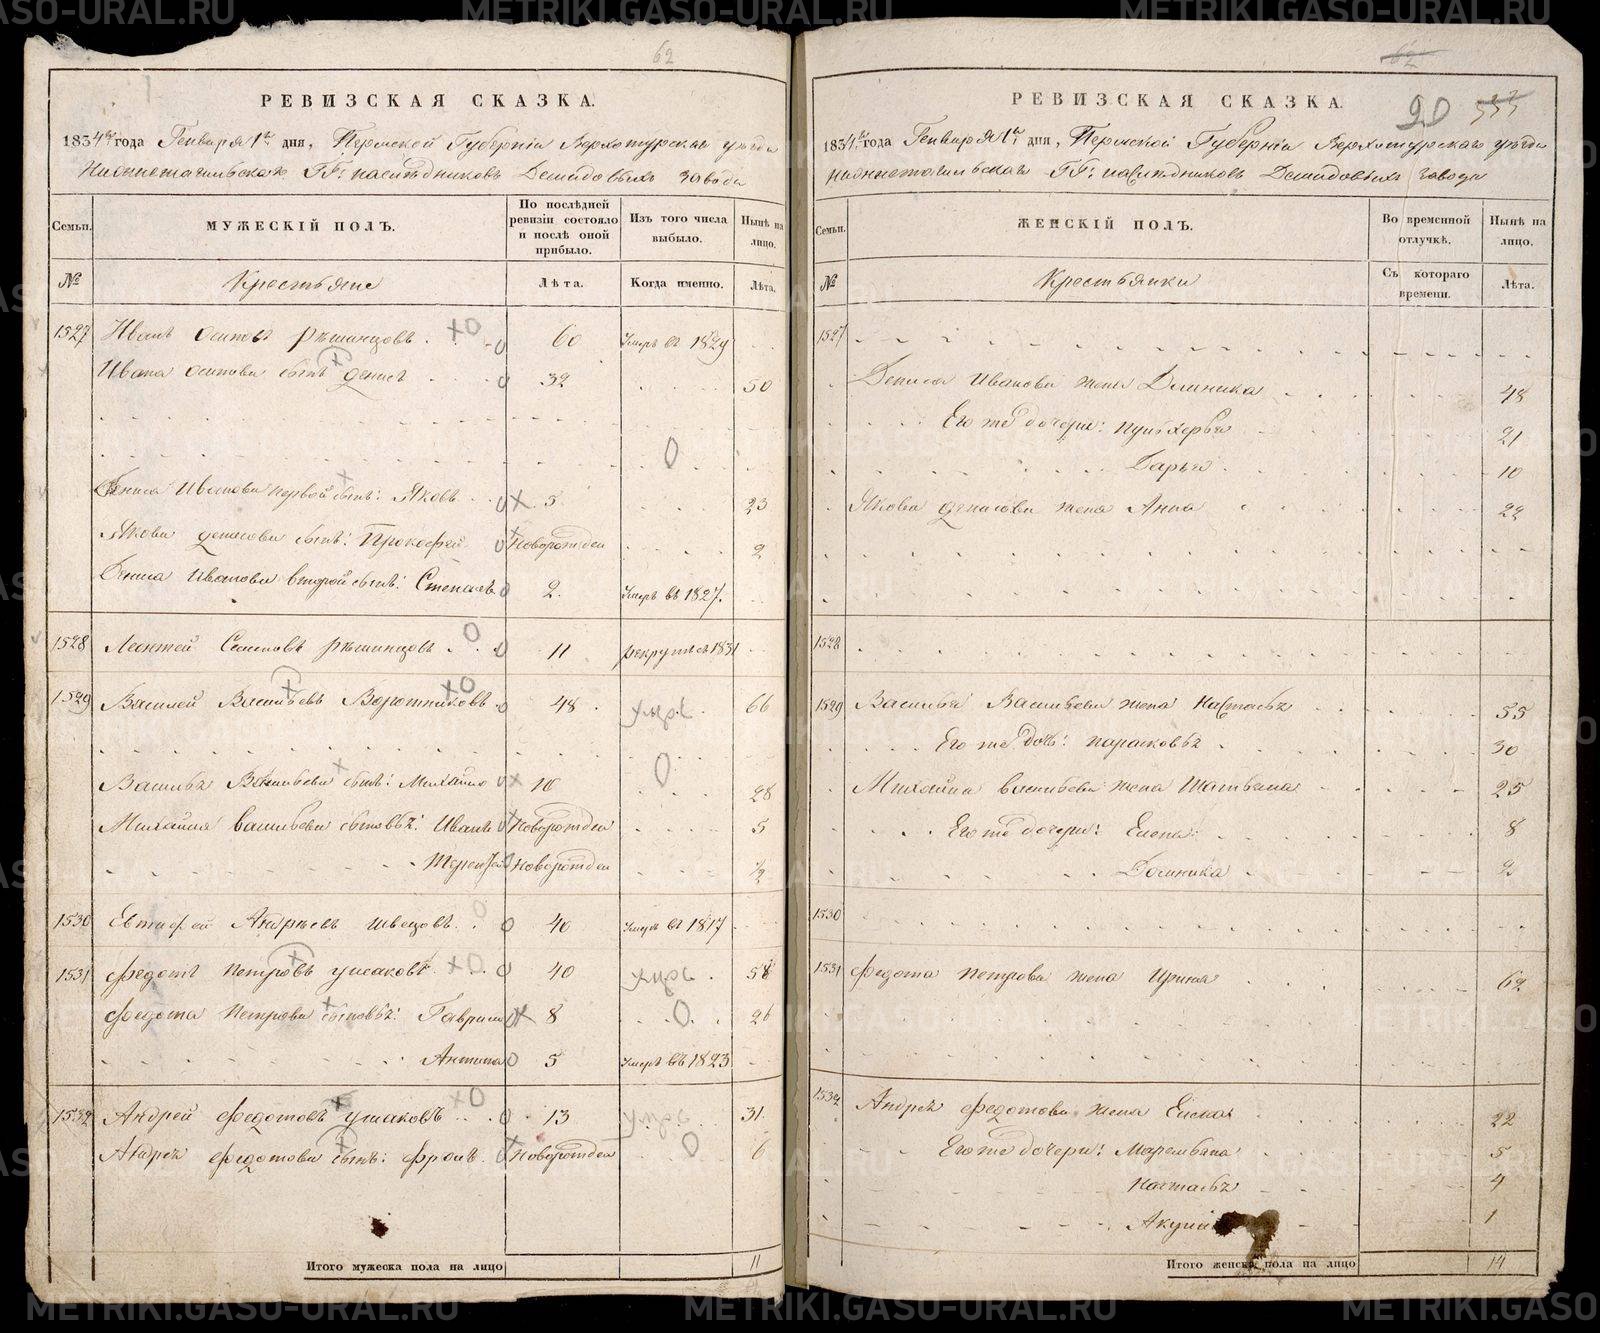 62
РЕВИЗСКАЯ СКАЗКА.
1834го года Генваря 1го дня, Пермской Губерніи Верхотурскаго уѣзда
Нижнетагильскаго ГГ: наслѣдниковъ Демидовыхъ завода
Семьи.
МУЖЕСКІЙ ПОЛЪ.
По послѣдней ревизіи состояло и послѣ оной прибыло.
Изъ того числа выбыло.
Нынѣ на лицо.
№
Крестьяне
Лѣта.
Когда именно.
Лѣта.
1527 Иванъ Осиповъ Рѣшинцовъ 60 Умеръ въ 1829
Ивана Осипова сынъ Денисъ 32 50
Дениса Иванова первой сынъ: Яковъ 5 23
Якова Денисова сынъ: Прокофей Новорожден 2
Дениса Иванова второй сынъ: Степанъ 2 Умеръ въ 1827.
1528 Леонтей Семеновъ Рѣшинцовъ 11 рекрутъ съ 1831
1529 Василей Васильевъ Воротниковъ 48 умръ 66
Василья Васильева сынъ: Михайло 10 28
Михайла Васильева сыновья: Иванъ Новорожден 5
Терентей Новорожден 1/2
1530 Евтифей Андрѣевъ Швецовъ 40 Умеръ въ 1817
1531 Федотъ Петровъ Ушаковъ 40 умръ 58
Федота Петрова сыновья: Гаврило 8 26
Антипа 5 Умеръ въ 1823
1532 Андрей Федотовъ Ушаковъ 13 умръ 31
Андрея Федотова сынъ: Фролъ Новорожден 6
Итого мужеска пола на лицо 11
62
20
537
РЕВИЗСКАЯ СКАЗКА.
1834го года Генваря 1го дня, Пермской Губерніи Верхотурскаго уѣзда
Нижнетагильскаго ГГ: наслѣдниковъ Демидовыхъ завода
Семьи.
ЖЕНСКІЙ ПОЛЪ.
Во временной отлучкѣ.
Нынѣ на лицо.
№
Крестьянки
Съ котораго времени.
Лѣта.
1527
Дениса Иванова жена Домника 48
Его же дочери: Пульхерья 21
Дарья 10
Якова Денисова жена Анна 22
1528
1529 Василья Васильева жена Настасья 55
Его же дочь: Парасковья 30
Михайла Васильева жена Татьяна 25
Его же дочери: Елена 8
Домника 3
1530
1531 Федота Петрова жена Ирина 62
1532 Андрея Федотова жена Елена 22
Его же дочери: Маремьяна 5
Настасья 4
Акулина 1
Итого женска пола на лицо 14
METRIKI.GASO-URAL.RU